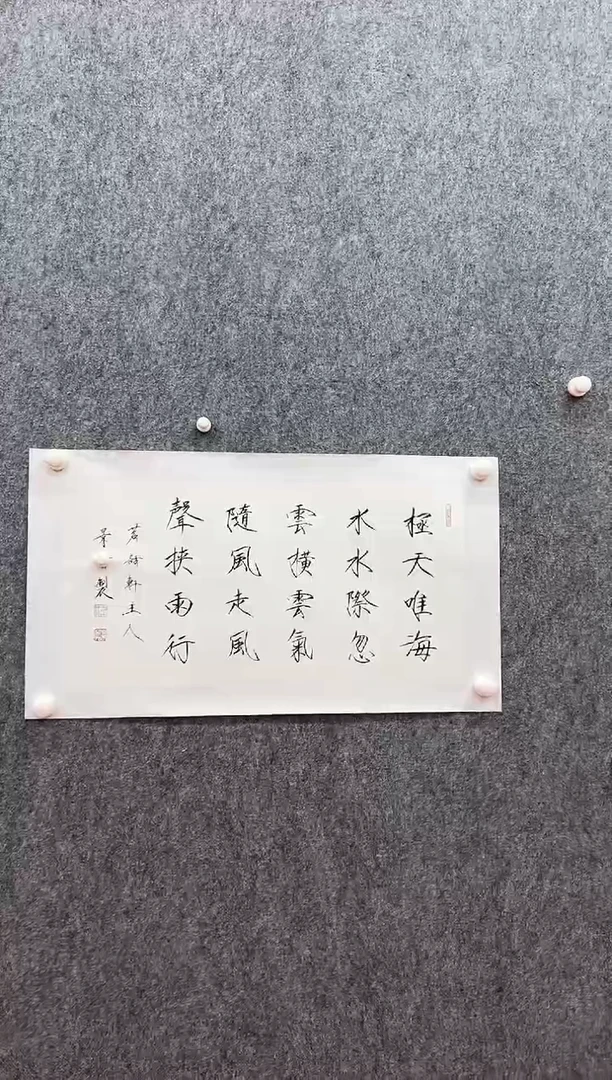 極天唯海
水水際忽
雲横雲氣
隨風走風
聲挟雨行
軒主人
製